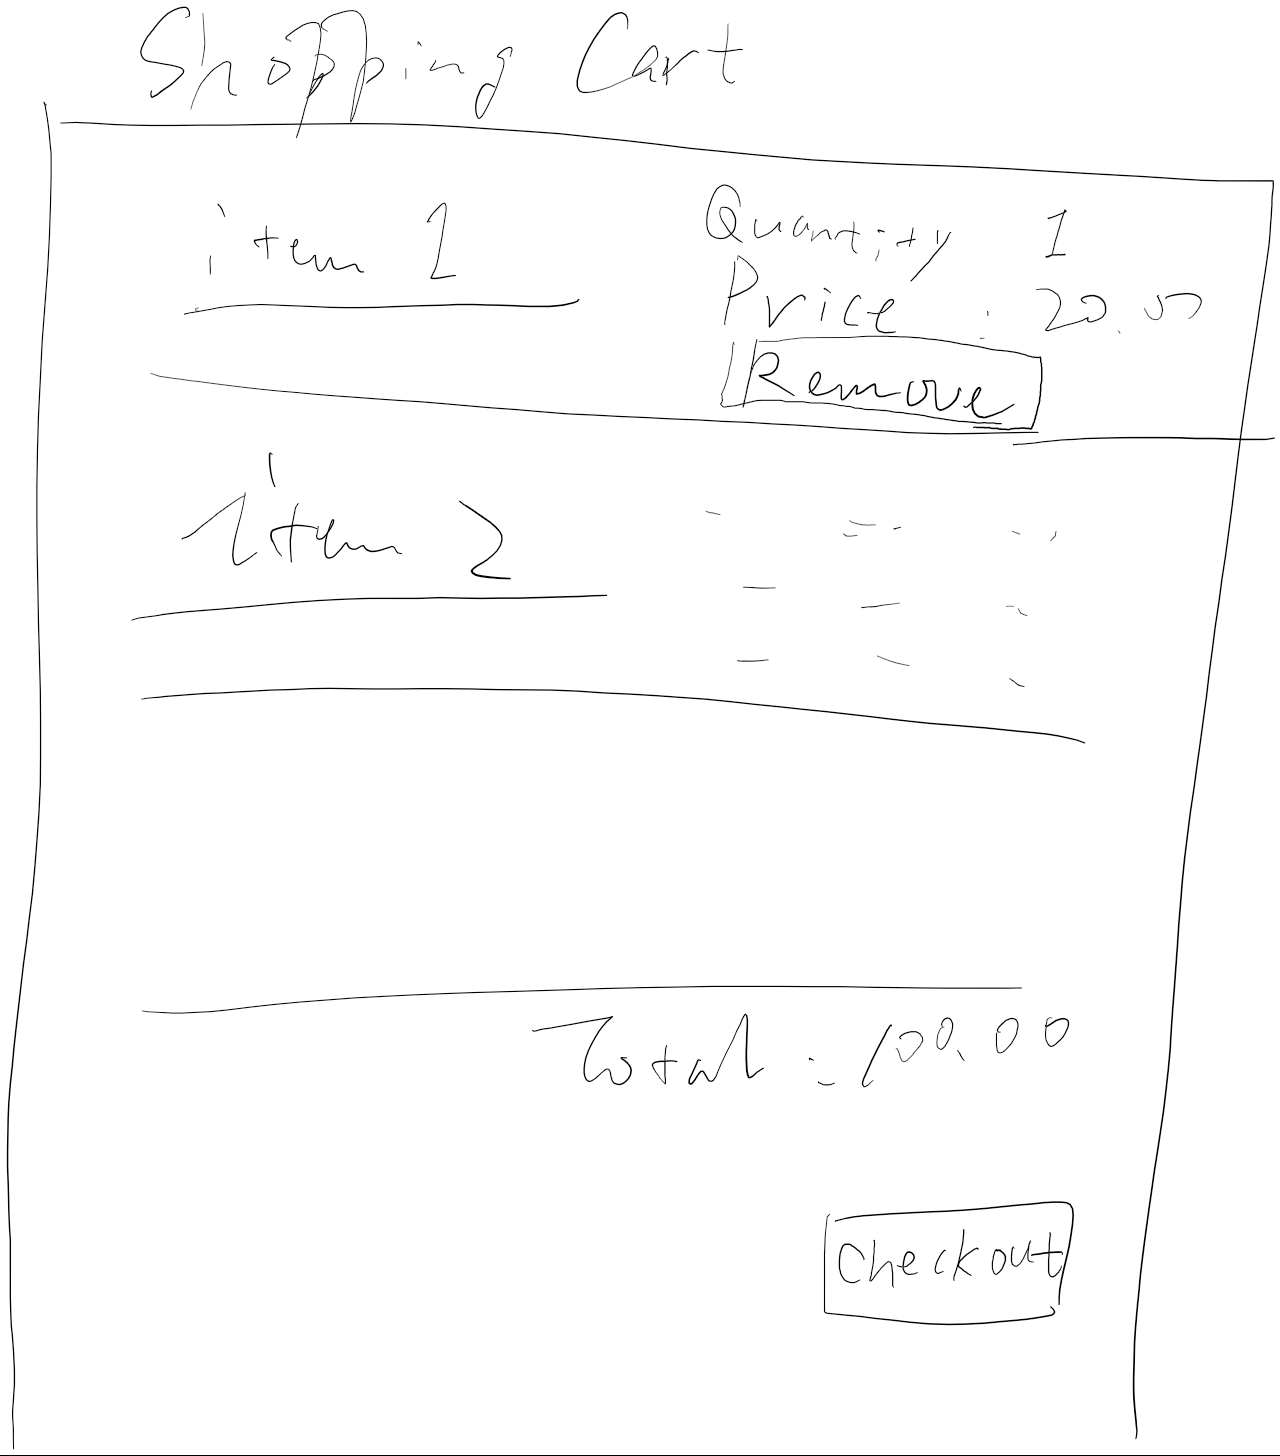 Shopping Cart
item 1
Quantity 1
Price : 20.00
Remove
item 2
Total : 100.00
Checkout